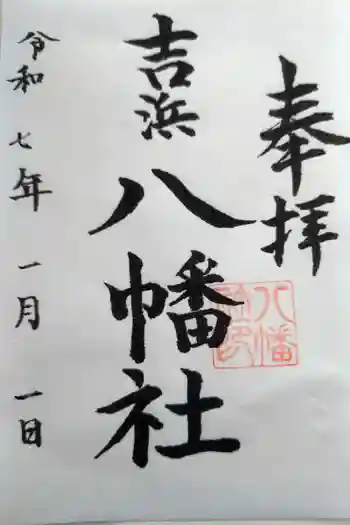 奉拝
吉浜
八幡社
令和七年一月一日
八幡